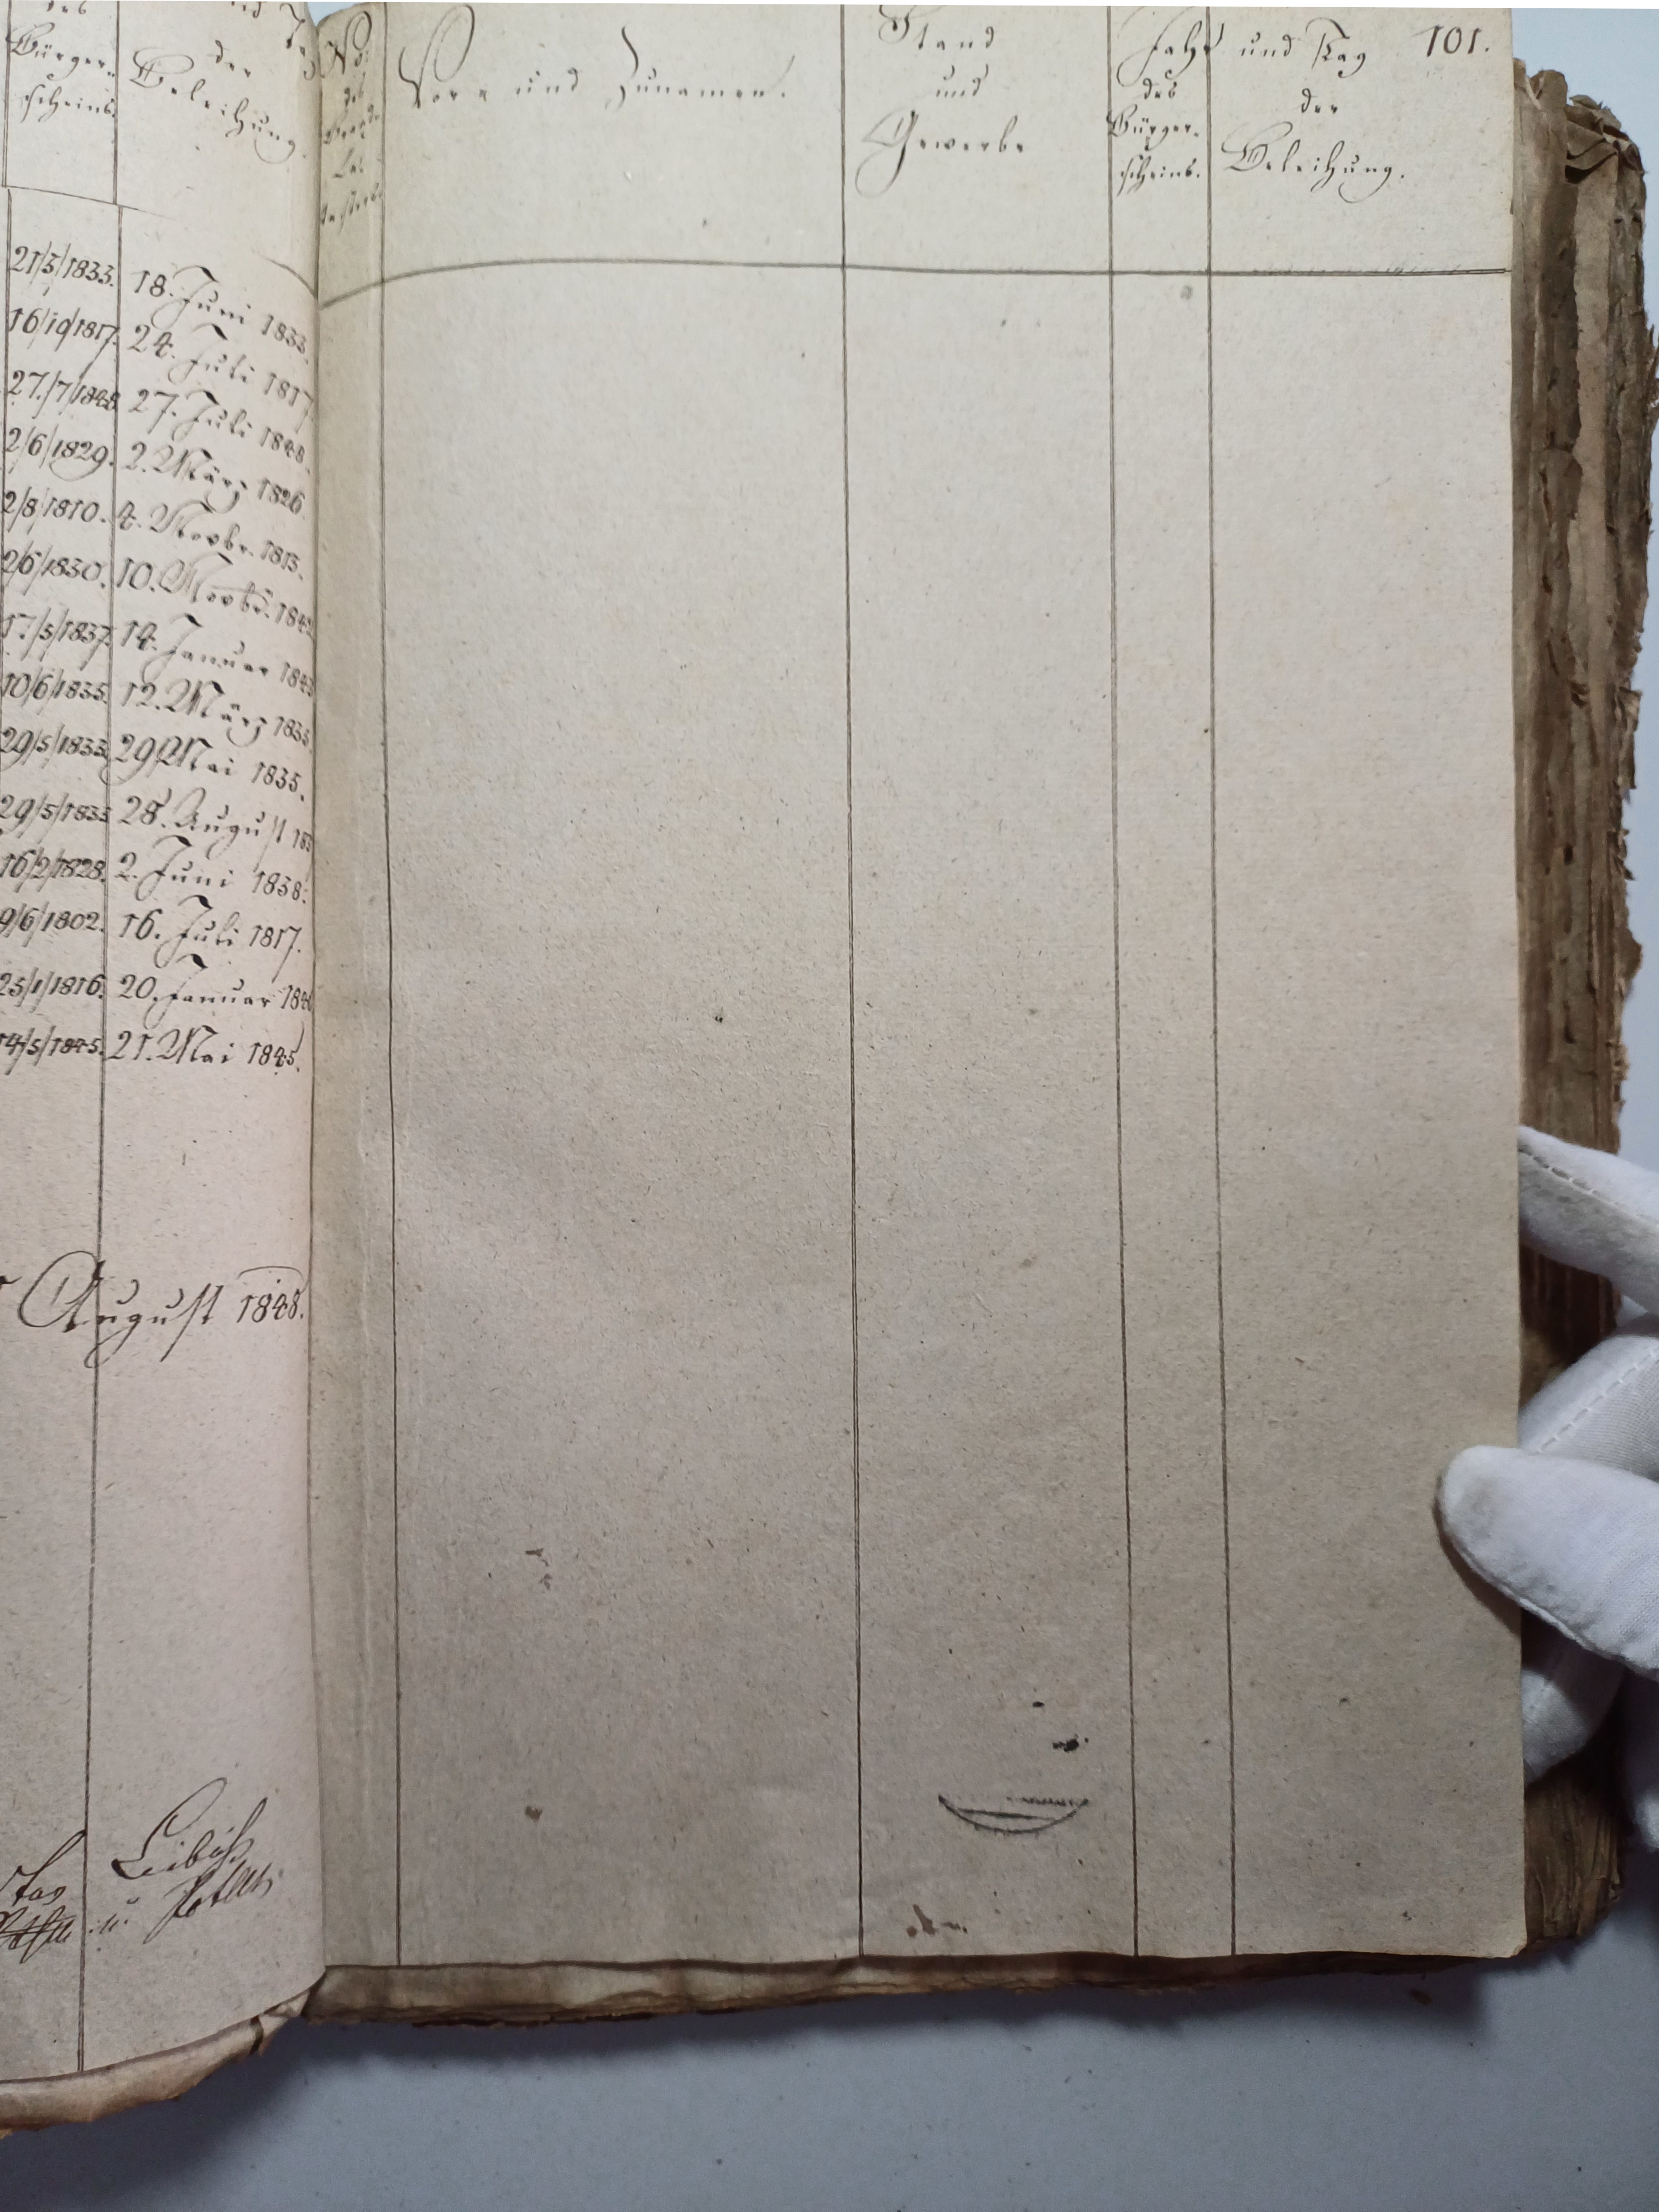 des
Bürger-
scheins.
und
der
Beleihung.
21/5/1833. 18. Juni 1833.
16/10/1817. 24. Juli 1817
27./7/1848. 27. Juli 1848.
2/6/1829. 2. März 1826
2/8/1810. 4. Novbr. 1813.
2/6/1830. 10. Novbr. 184
17/5/1837. 14. Januar 184
10/6/1835. 12. März 1835.
29/5/1833. 29 Mai 1835.
29/5/1835 28. August 183
16/2/1828. 2. Juni 1838.
9/6/1802. 16. Juli 1817.
25/1/1816. 20. Januar 184
14/5/1845. 21. Mai 1845.
August 1848.
u.
No:
des
Vor- und Zunamen.
Stand
und
Gewerbe
Jahr und Tag
des
Bürger-
scheins.
der
Beleihung.
101.